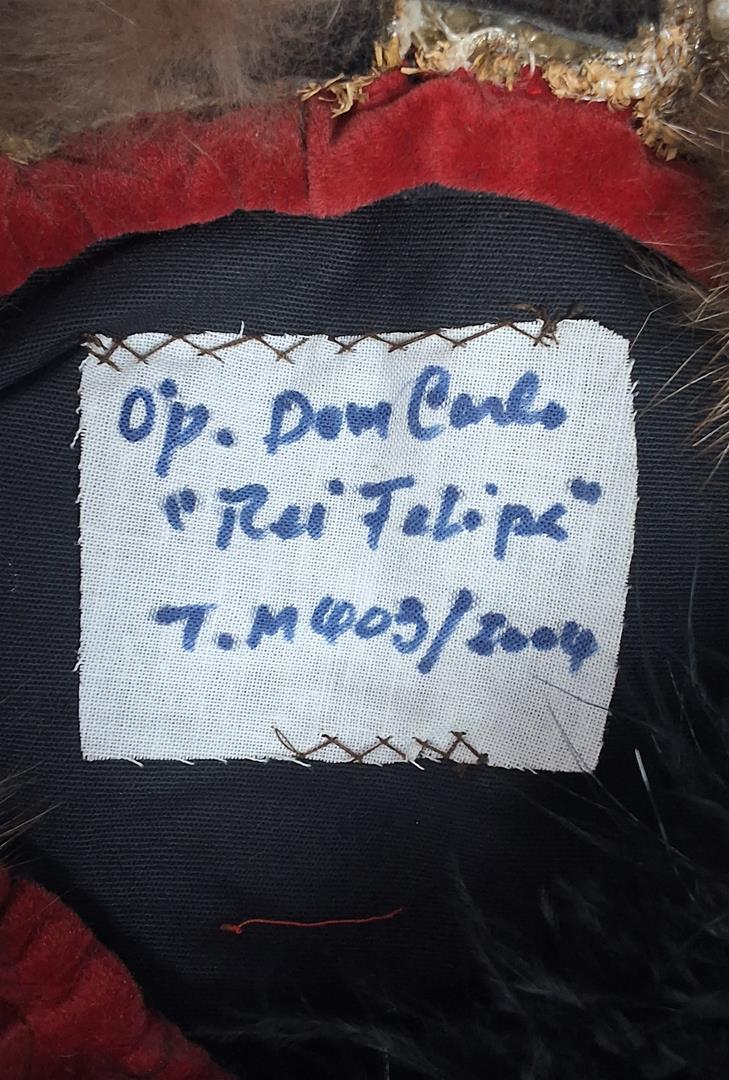 Óp. Dom Carlo
"Rei Felipe"
T.M 4003/2004